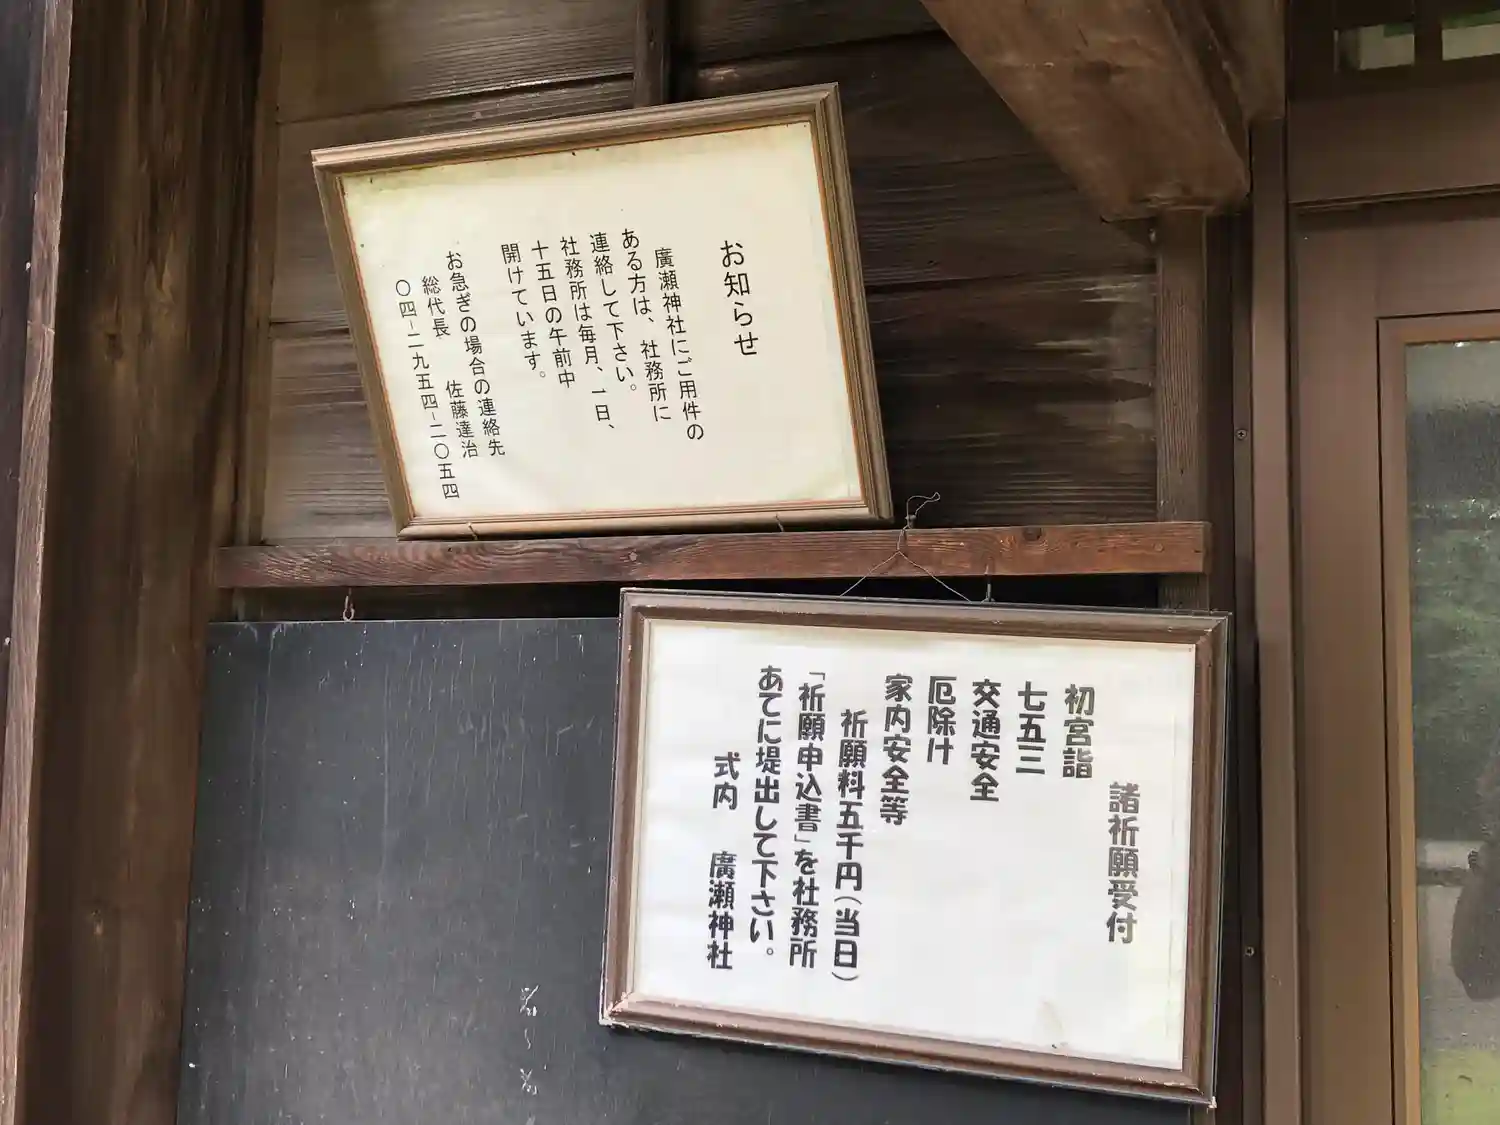 お知らせ
廣瀬神社にご用件の
ある方は、社務所に
連絡して下さい。
社務所は毎月、一日、
十五日の午前中
開けています。
お急ぎの場合の連絡先
総代長　佐藤達治
〇四ー二九五四ー二〇五四
諸祈願受付
初宮詣
七五三
交通安全
厄除け
家内安全等
祈願料五千円（当日）
「祈願申込書」を社務所
あてに堤出して下さい。
式内　廣瀬神社